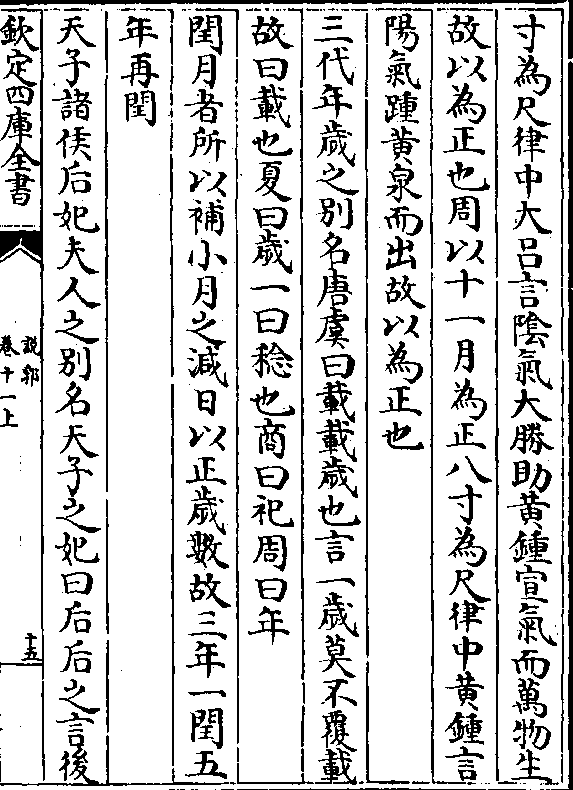 寸為尺律中大呂言隂氣大勝助黃鍾宣氣而萬物生
故以為正也周以十一月為正八寸為尺律中黃鍾言
陽氣踵黃泉而出故以為正也
三代年歲之別名唐虞曰載載歲也言一歲莫不覆載
故曰載也夏曰歲一曰稔也商曰祀周曰年
閏月者所以補小月之減日以正歲數故三年一閏五
年再閏
天子諸侯后妃夫人之別名天子之妃曰后后之言後
欽定四庫全書
說郛
卷十一上
十五